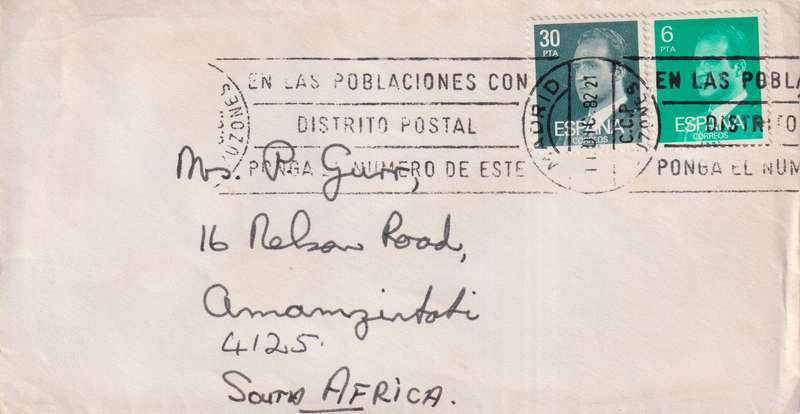 30
PTA
ESPAÑA
CORREOS
6
PTA
ESPAÑA
CORREOS
EN LAS POBLACIONES CON
DISTRITO POSTAL
PONGA EL NUMERO DE ESTE
MADRID
82 21
C.C.P.
EN LAS POBLA
DISTRITO
PONGA EL NUM
Mrs. P. Gurr,
16 Nelson Road,
Amamzintoti
4125.
SOUTH AFRICA.